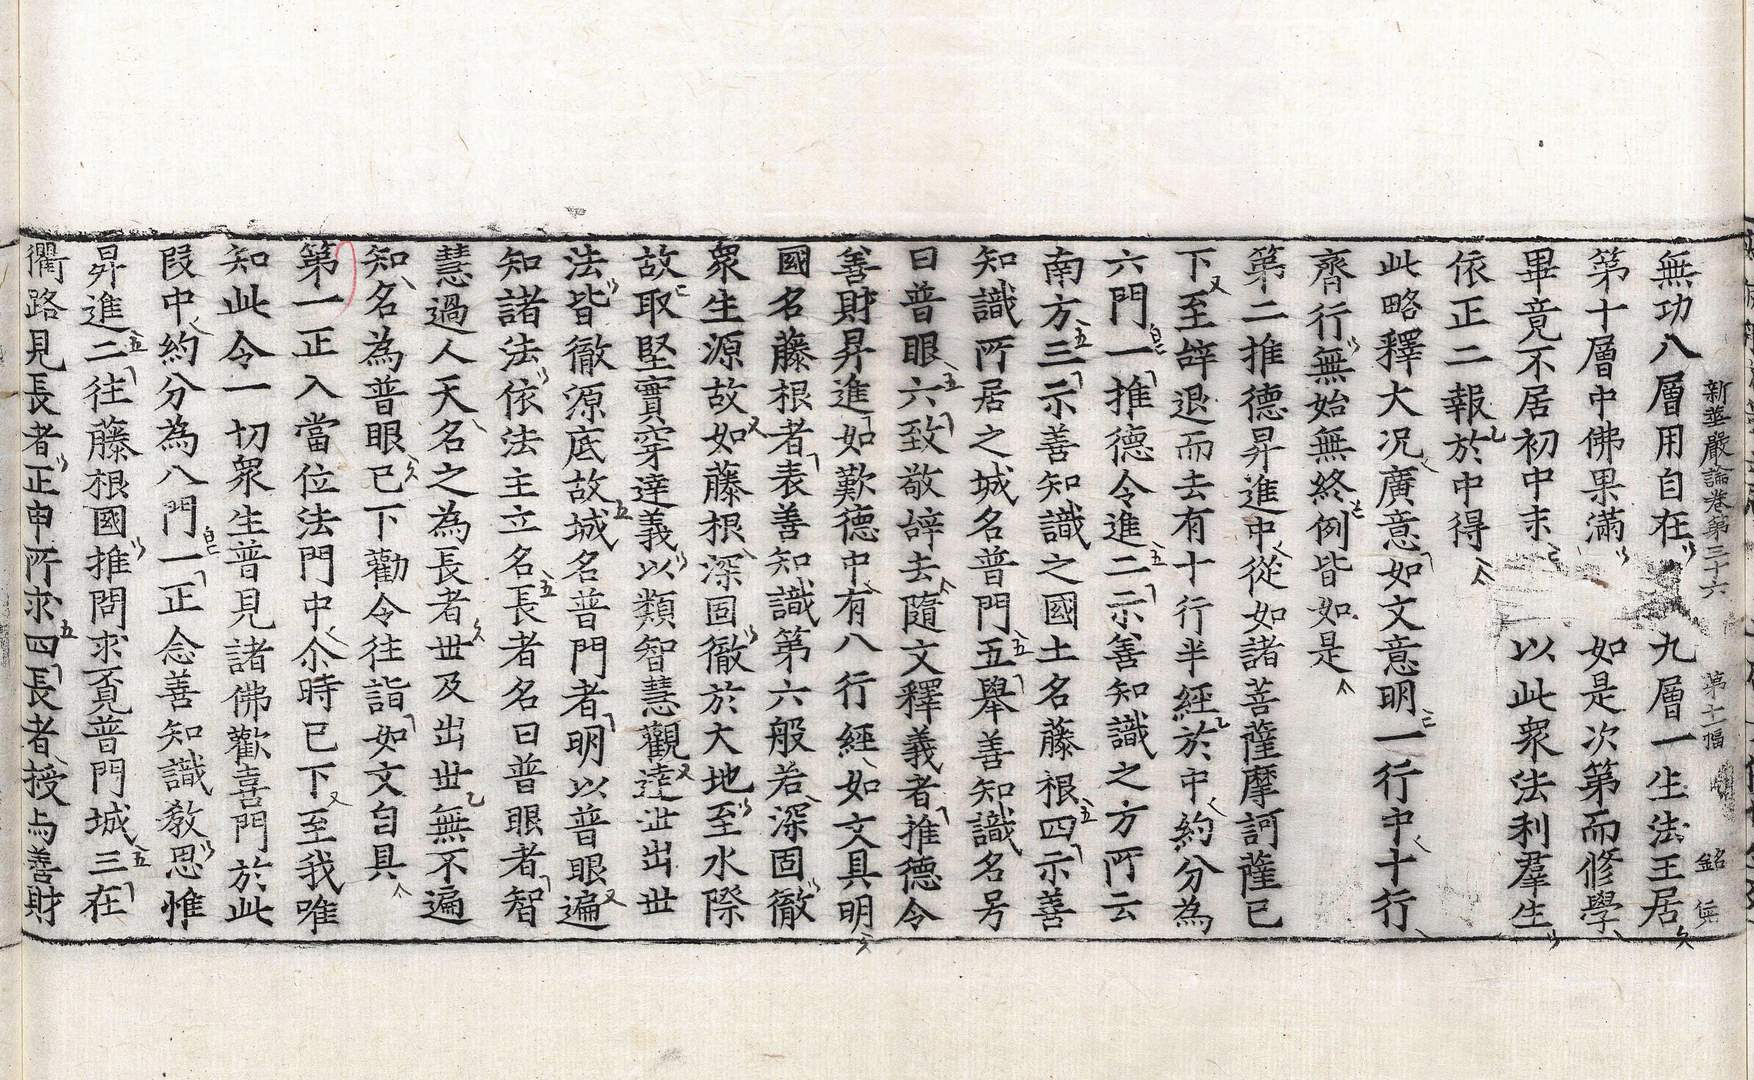 新華嚴論卷第三十六 第十一幅 銘 㒇
無功八層用自在 九層一生法王居
第十層中佛果滿 如是次第而修學
畢竟不居初中末 以此衆法利羣生
依正二報於中得
此略釋大况廣意如文意明一行中十行
齊行無始無終例皆如是
第二推德昇進中從如諸菩薩摩訶薩已
下至辝退而去有十行半經於中約分為
六門一推德令進二示善知識之方所云
南方三示善知識之國土名藤根四示善
知識所居之城名普門五舉善知識名号
曰普眼六致敬辝去隨文釋義者推德令
善財昇進如歎德中有八行經如文具明
國名藤根者表善知識第六般若深固徹
衆生源故如藤根深固徹於大地至水際
故取堅實穿達義以類智慧觀達世出世
法皆徹源底故城名普門者明以普眼遍
知諸法依法主立名長者名曰普眼者智
慧過人天名之為長者世及出世無不遍
知名為普眼已下勸令往詣如文自具
第一正入當位法門中尒時已下至我唯
知此令一切衆生普見諸佛歡喜門於此
段中約分為八門一正念善知識敎思惟
昇進二往藤根國推問求覓普門城三在
衢路見長者正申所求四長者授与善財